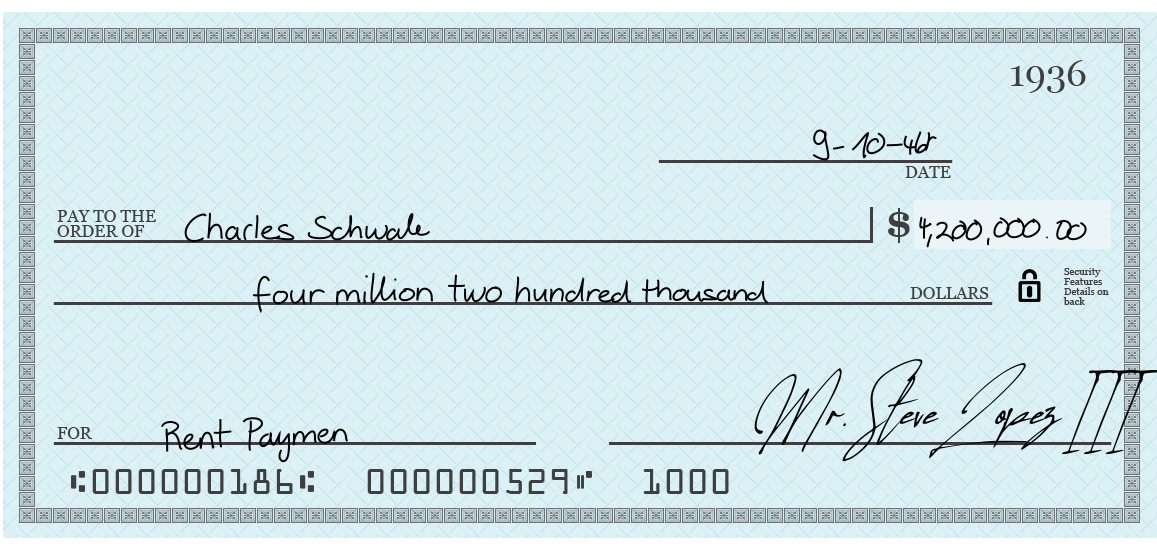 1936
DATE
PAY TO THE
ORDER OF Charles Schwale $ 4,200,000.00
four million two hundred thousand DOLLARS
Security
Features
Details on
back
FOR Rent Paymen Mr. Steve Lopez III
⑆000000186⑆ 000000529⑈ 1000